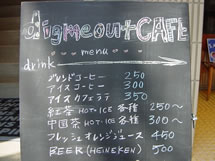 digmeout CAFE
menu
drink
ブレンドコーヒー 250
アイスコーヒー 300
アイスカフェラテ 350
紅茶 HOT・ICE 各種 250～
中国茶 HOT・ICE 各種 300～
フレッシュオレンジジュース 450
BEER (HEINEKEN) 500